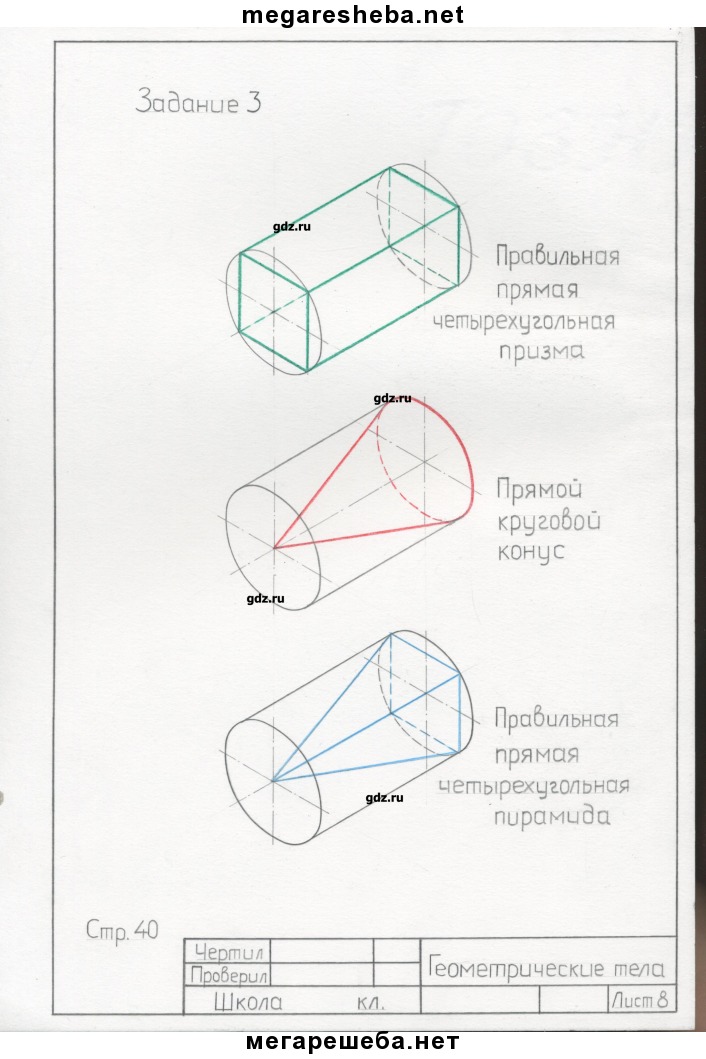 megaresheba.net
Задание 3
gdz.ru
Правильная
прямая
четырехугольная
призма
gdz.ru
Прямой
круговой
конус
gdz.ru
Правильная
прямая
четырехугольная
пирамида
gdz.ru
Стр. 40
Чертил
Проверил
Геометрические тела
Школа кл.
Лист 8
мегарешеба.нет